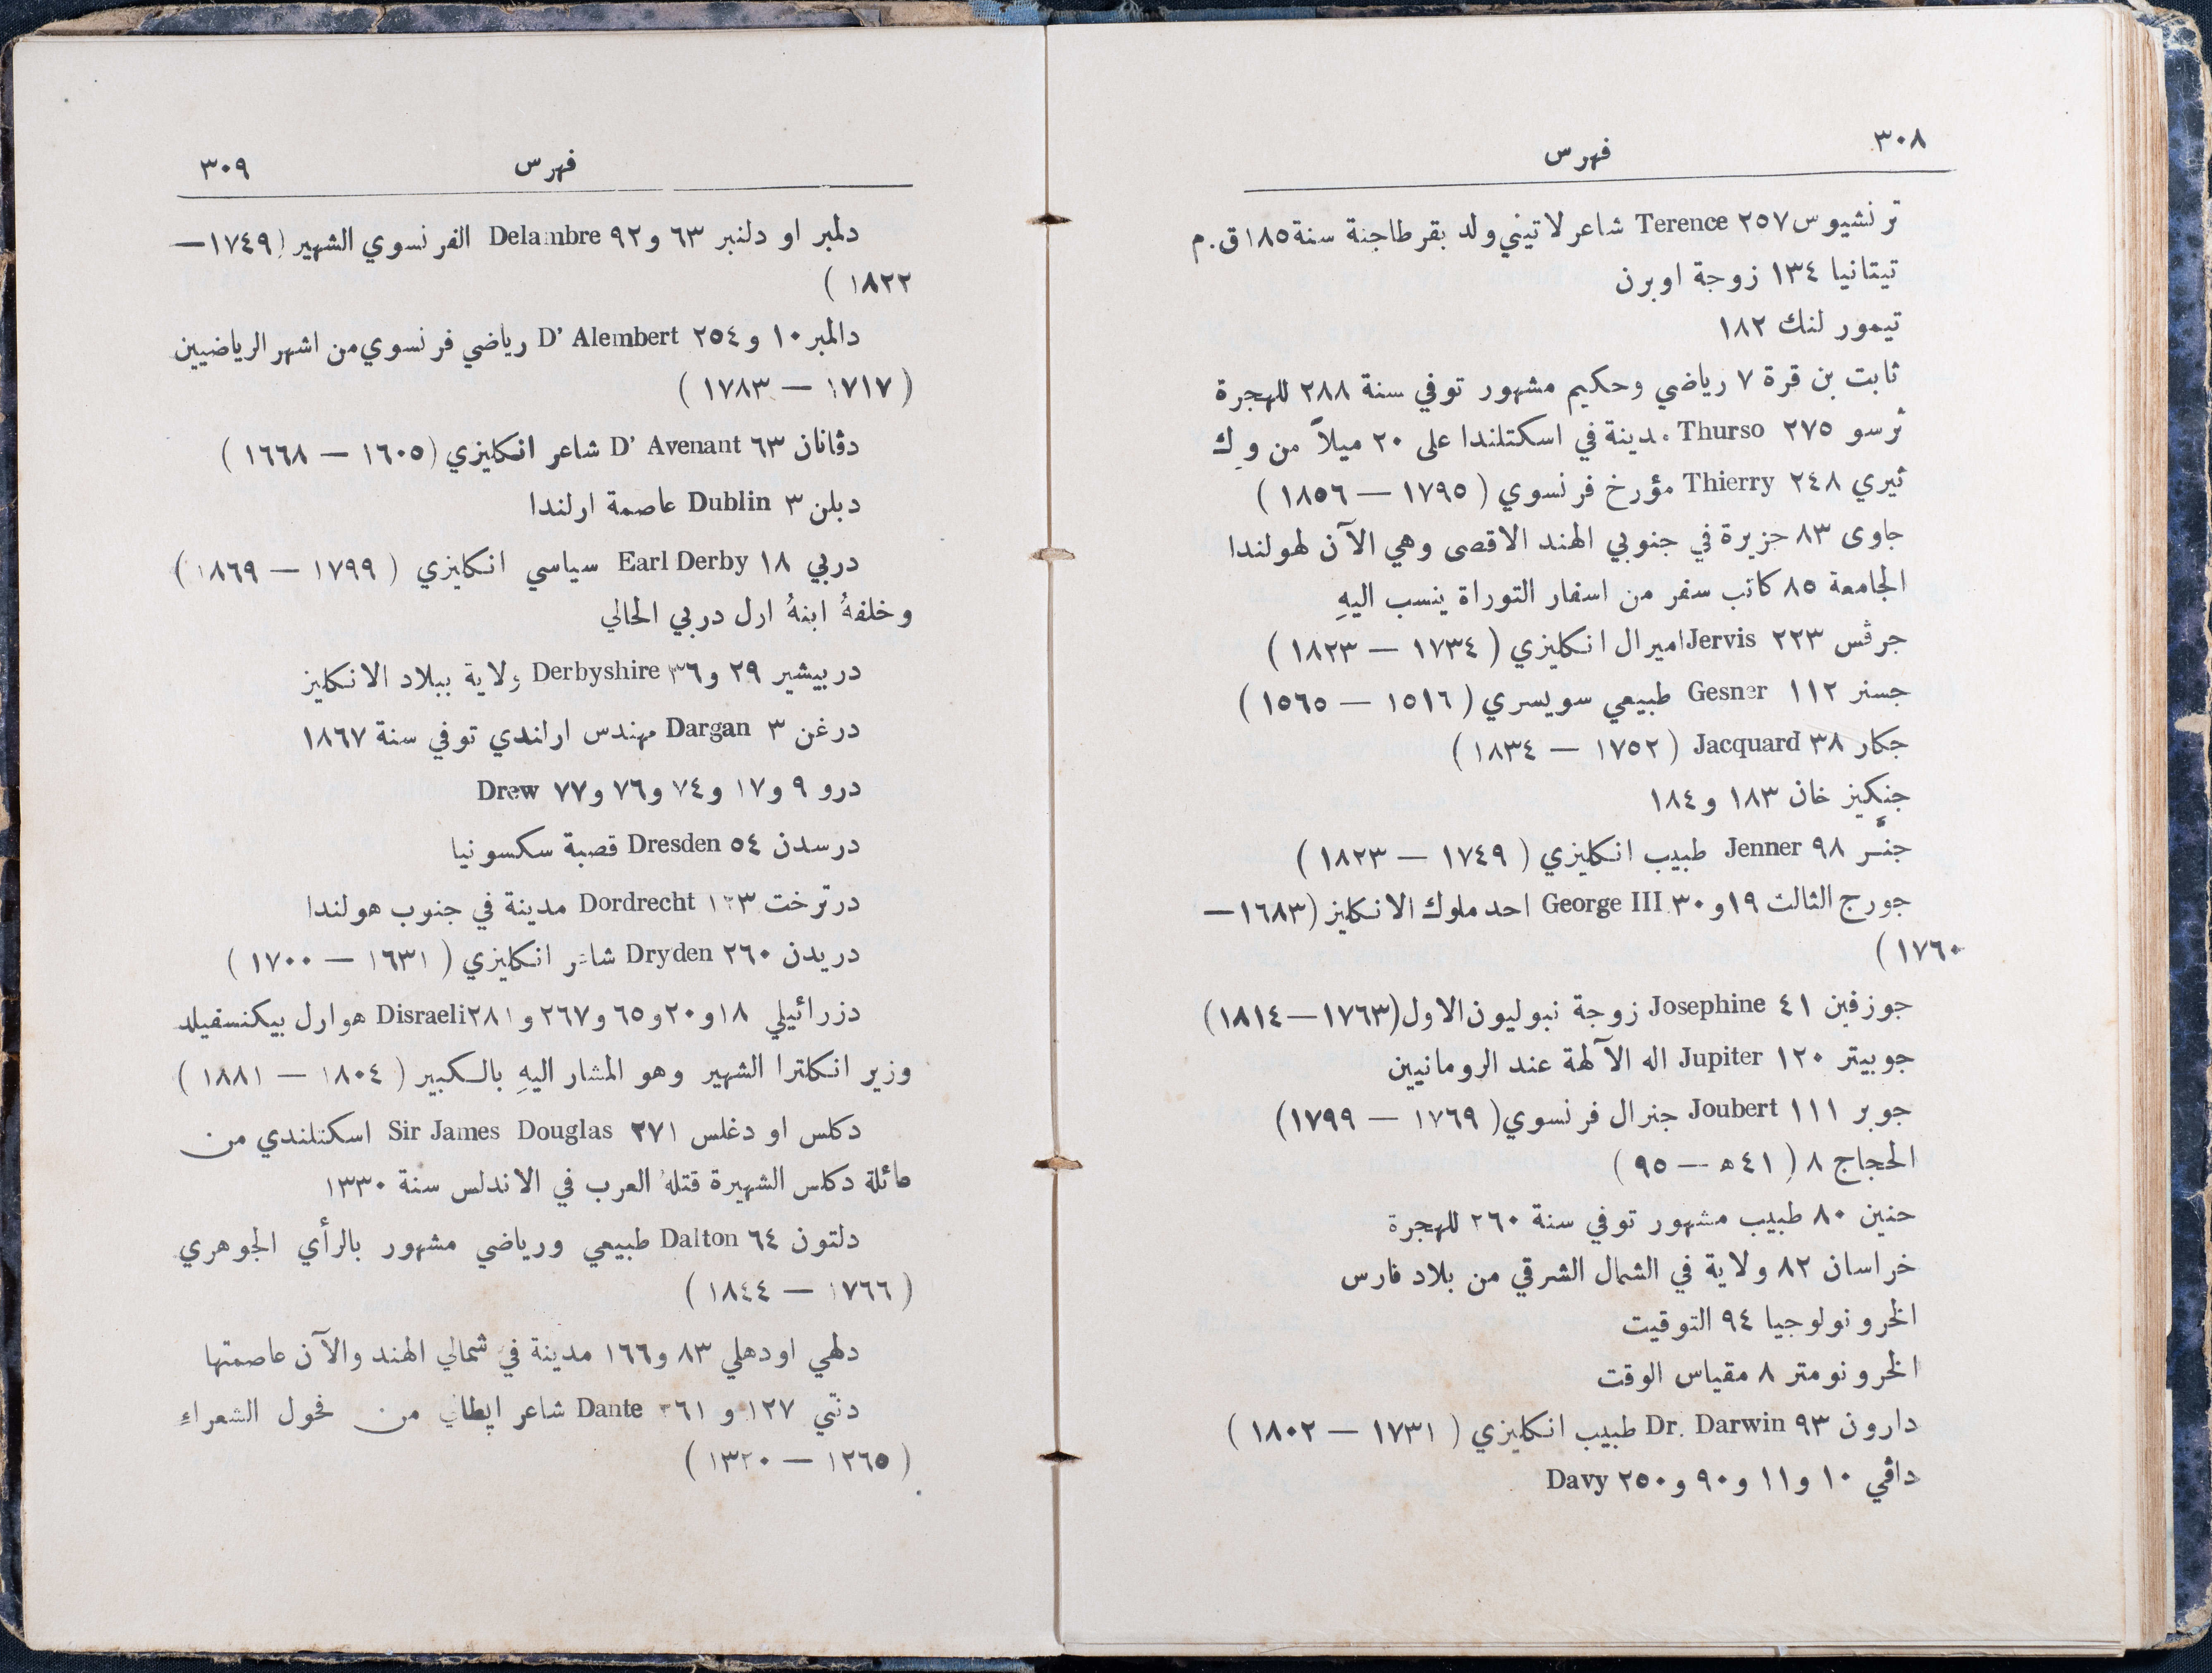 ٣٠٨
فهرس
ترنشيوس ٢٥٧ Terence شاعر لاتيني ولد بقرطاجنة سنة ١٨٥ ق.م
تيتانيا ١٣٤ زوجة اوبرن
تيمور لنك ١٨٢
ثابت بن قرة ٧ رياضي وحكيم مشهور توفي سنة ٢٨٨ للهجرة
ثرسو ٢٧٥ Thurso مدينة في اسكتلندا على ٢٠ ميلاً من وِك
ثيري ٢٤٨ Thierry مؤرخ فرنسوي ( ١٧٩٥ — ١٨٥٦ )
جاوى ٨٣ جزيرة في جنوبي الهند الاقصى وهي الآن لهولندا
الجامعة ٨٥ كاتب سفر من اسفار التوراة ينسب اليهِ
جرڤس ٢٢٣ Jervis اميرال انكليزي ( ١٧٣٤ — ١٨٢٣ )
جسنر ١١٢ Gesner طبيعي سويسري ( ١٥١٦ — ١٥٦٥ )
جكار ٣٨ Jacquard ( ١٧٥٢ — ١٨٣٤ )
جنكيز خان ١٨٣ و١٨٤
جنَّر ٩٨ Jenner طبيب انكليزي ( ١٧٤٩ — ١٨٢٣ )
جورج الثالث ١٩ و٣٠ George III احد ملوك الانكليز (١٦٨٣ —
١٧٦٠ )
جوزفين ٤١ Josephine زوجة نبوليون الاول (١٧٦٣ — ١٨١٤)
جوبيتر ١٢٠ Jupiter اله الآلهة عند الرومانيين
جوبر ١١١ Joubert جنرال فرنسوي ( ١٧٦٩ — ١٧٩٩)
الحجاج ٨ ( ٤١ ه — ٩٥ )
حنين ٨٠ طبيب مشهور توفي سنة ٢٦٠ للهجرة
خراسان ٨٢ ولاية في الشمال الشرقي من بلاد فارس
الخرونولوجيا ٩٤ التوقيت
الخرونومتر ٨ مقياس الوقت
دارون ٩٣ Dr. Darwin طبيب انكليزي ( ١٧٣١ — ١٨٠٢ )
داڤي ١٠ و١١ و٩٠ و٢٥٠ Davy
فهرس
٣٠٩
دلمبر او دلنبر ٦٣ و٩٢ Delambre الفرنسوي الشهير (١٧٤٩ —
١٨٢٢ )
دالمبر ١٠ و٢٥٤ D' Alembert رياضي فرنسوي من اشهر الرياضيين
( ١٧١٧ — ١٧٨٣ )
دڤانان ٦٣ D' Avenant شاعر انكليزي (١٦٠٥ — ١٦٦٨ )
دبلن ٣ Dublin عاصمة ارلندا
دربي ١٨ Earl Derby سياسي انكليزي ( ١٧٩٩ — ١٨٦٩ )
وخلفهُ ابنهُ ارل دربي الحالي
دربيشير ٢٩ و٣٦ Derbyshire ولاية ببلاد الانكليز
درغن ٣ Dargan مهندس ارلندي توفي سنة ١٨٦٧
درو ٩ و١٧ و٧٤ و٧٦ و٧٧ Drew
درسدن ٥٤ Dresden قصبة سكسونيا
درترخت ١٢٣ Dordrecht مدينة في جنوب هولندا
دريدن ٢٦٠ Dryden شاعر انكليزي ( ١٦٣١ — ١٧٠٠ )
دزرائيلي ١٨ و٢٠ و٦٥ و٢٦٧ و٢٨١ Disraeli هو ارل بيكنسفيلد
وزير انكلترا الشهير وهو المشار اليهِ بالكبير ( ١٨٠٤ — ١٨٨١ )
دكلس او دغلس ٢٧١ Sir James Douglas اسكتلندي من
عائلة دكلس الشهيرة قتلهُ العرب في الاندلس سنة ١٣٣٠
دلتون ٦٤ Dalton طبيعي ورياضي مشهور بالرأي الجوهري
( ١٧٦٦ — ١٨٤٤ )
دلهي او دهلي ٨٣ و١٦٦ مدينة في شمالي الهند والآن عاصمتها
دنتي ١٢٧ و٢٦١ Dante شاعر ايطالي من فحول الشعراءِ
( ١٢٦٥ — ١٣٢٠ )